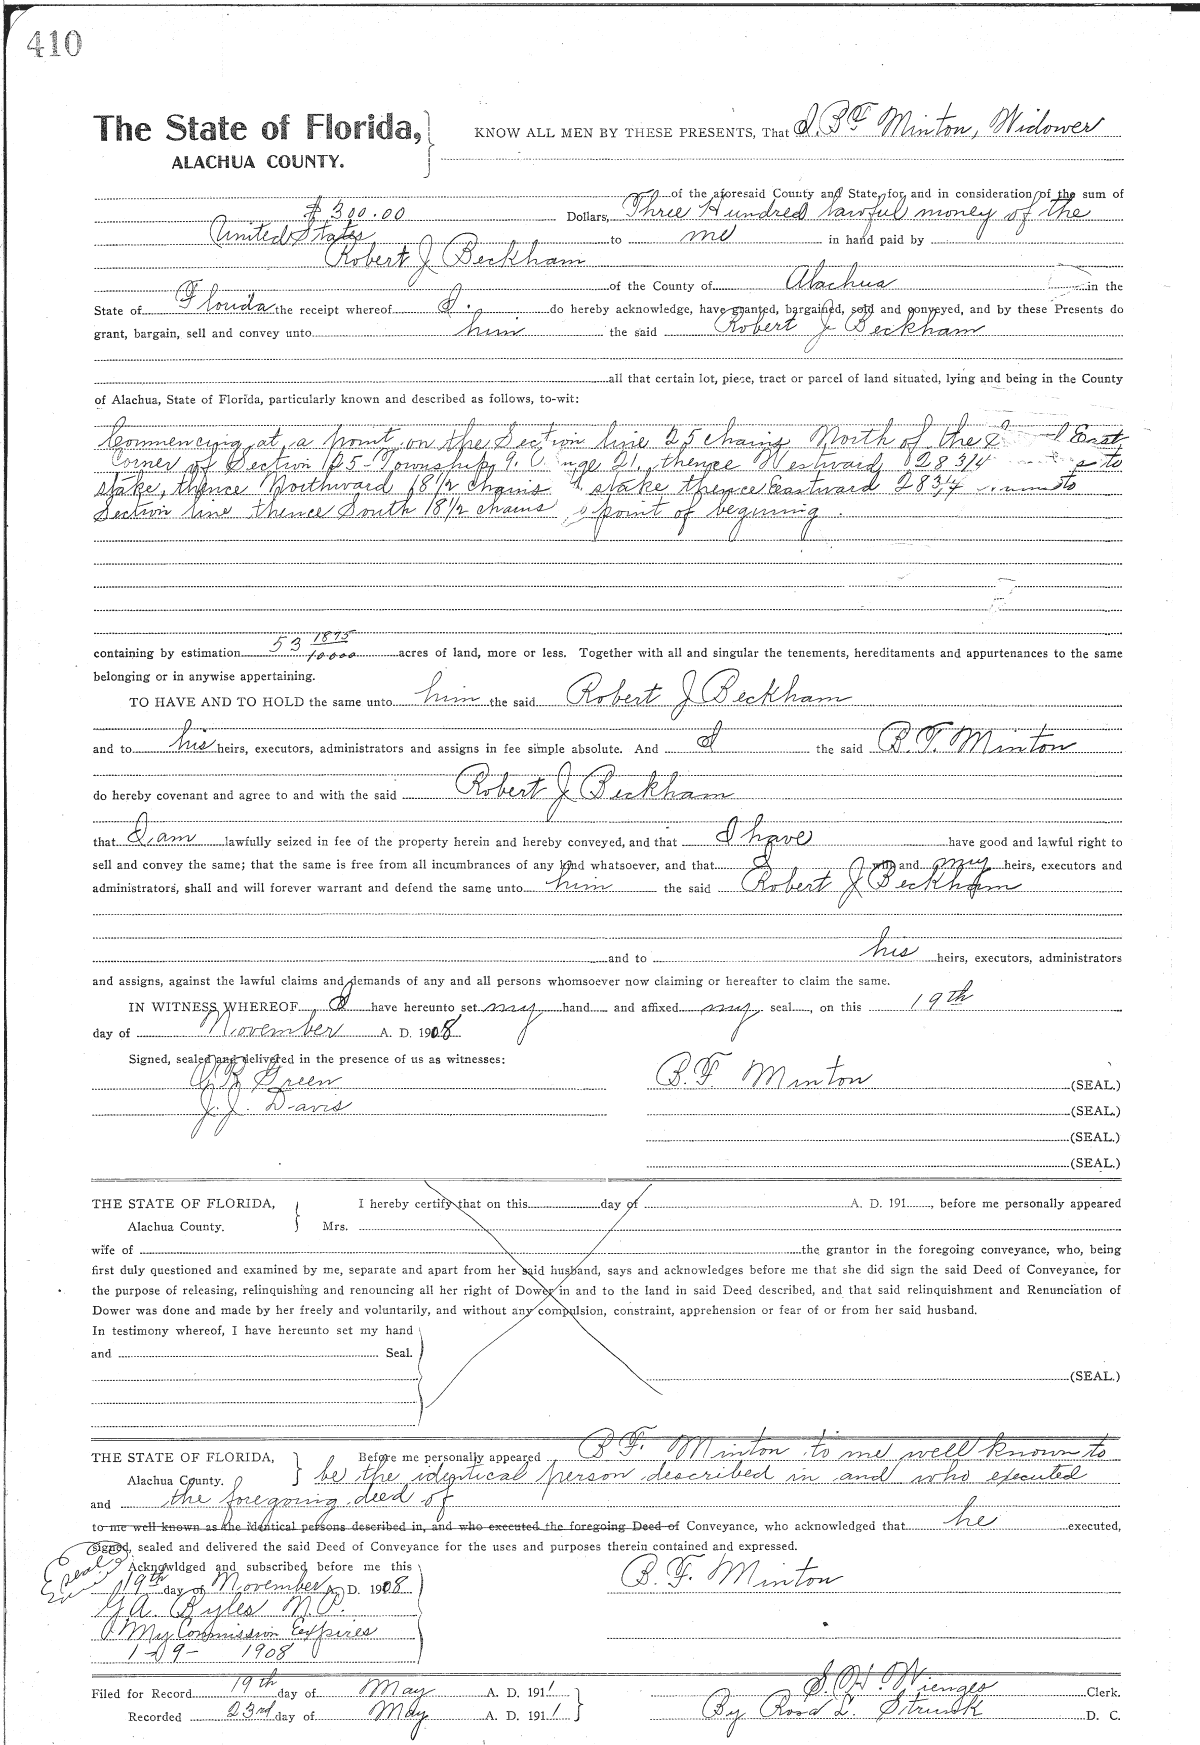 410
The State of Florida,
ALACHUA COUNTY.
KNOW ALL MEN BY THESE PRESENTS, That I, B F Minton, Widower
of the aforesaid County and State, for and in consideration of the sum of
$300.00 Dollars, Three Hundred lawful money of the
United States to me in hand paid by
Robert J Beckham
of the County of Alachua in the
State of Florida the receipt whereof I. do hereby acknowledge, have granted, bargained, sold and conveyed, and by these Presents do
grant, bargain, sell and convey unto him the said Robert J Beckham
all that certain lot, piece, tract or parcel of land situated, lying and being in the County
of Alachua, State of Florida, particularly known and described as follows, to-wit:
Commencing at a point on the Section line 25 chains North of the East
Corner of Section 25 Township 9. 21. thence Westward 28 3/4 to
stake, thence Northward 18 1/2 chains stake thence Eastward 28 3/4 to
Section line thence South 18 1/2 chains point of beginning.
containing by estimation 53 1875/10000 acres of land, more or less. Together with all and singular the tenements, hereditaments and appurtenances to the same
belonging or in anywise appertaining.
TO HAVE AND TO HOLD the same unto him the said Robert J Beckham
and to his heirs, executors, administrators and assigns in fee simple absolute. And I the said B. F. Minton
do hereby covenant and agree to and with the said Robert J Beckham
that I am lawfully seized in fee of the property herein and hereby conveyed, and that I have have good and lawful right to
sell and convey the same; that the same is free from all incumbrances of any kind whatsoever, and that I will and my heirs, executors and
administrators, shall and will forever warrant and defend the same unto him the said Robert J Beckham
and to his heirs, executors, administrators
and assigns, against the lawful claims and demands of any and all persons whomsoever now claiming or hereafter to claim the same.
IN WITNESS WHEREOF I have hereunto set my hand and affixed my seal, on this 19th
day of November A. D. 1908
Signed, sealed and delivered in the presence of us as witnesses:
Green B. F Minton (SEAL.)
J. J. Davis (SEAL.)
(SEAL.)
(SEAL.)
THE STATE OF FLORIDA, I hereby certify that on this day of A. D. 191 , before me personally appeared
Alachua County. Mrs.
wife of the grantor in the foregoing conveyance, who, being
first duly questioned and examined by me, separate and apart from her said husband, says and acknowledges before me that she did sign the said Deed of Conveyance, for
the purpose of releasing, relinquishing and renouncing all her right of Dower in and to the land in said Deed described, and that said relinquishment and Renunciation of
Dower was done and made by her freely and voluntarily, and without any compulsion, constraint, apprehension or fear of or from her said husband.
In testimony whereof, I have hereunto set my hand
and Seal.
(SEAL.)
THE STATE OF FLORIDA, Before me personally appeared B F. Minton to me well known to
Alachua County. be the identical person described in and who executed
and the foregoing deed of
to me well known as the identical persons described in, and who executed the foregoing Deed of Conveyance, who acknowledged that he executed,
signed, sealed and delivered the said Deed of Conveyance for the uses and purposes therein contained and expressed.
seal Acknowldged and subscribed before me this
19th day of November A. D. 1908 B. F. Minton
G. A. Ryles N.P.
My Commission Expires
1-29- 1908
Filed for Record 19th day of May A. D. 1911 S. H. Wienges Clerk.
Recorded 23rd day of May A. D. 1911 By Rosa L. Strunk D. C.